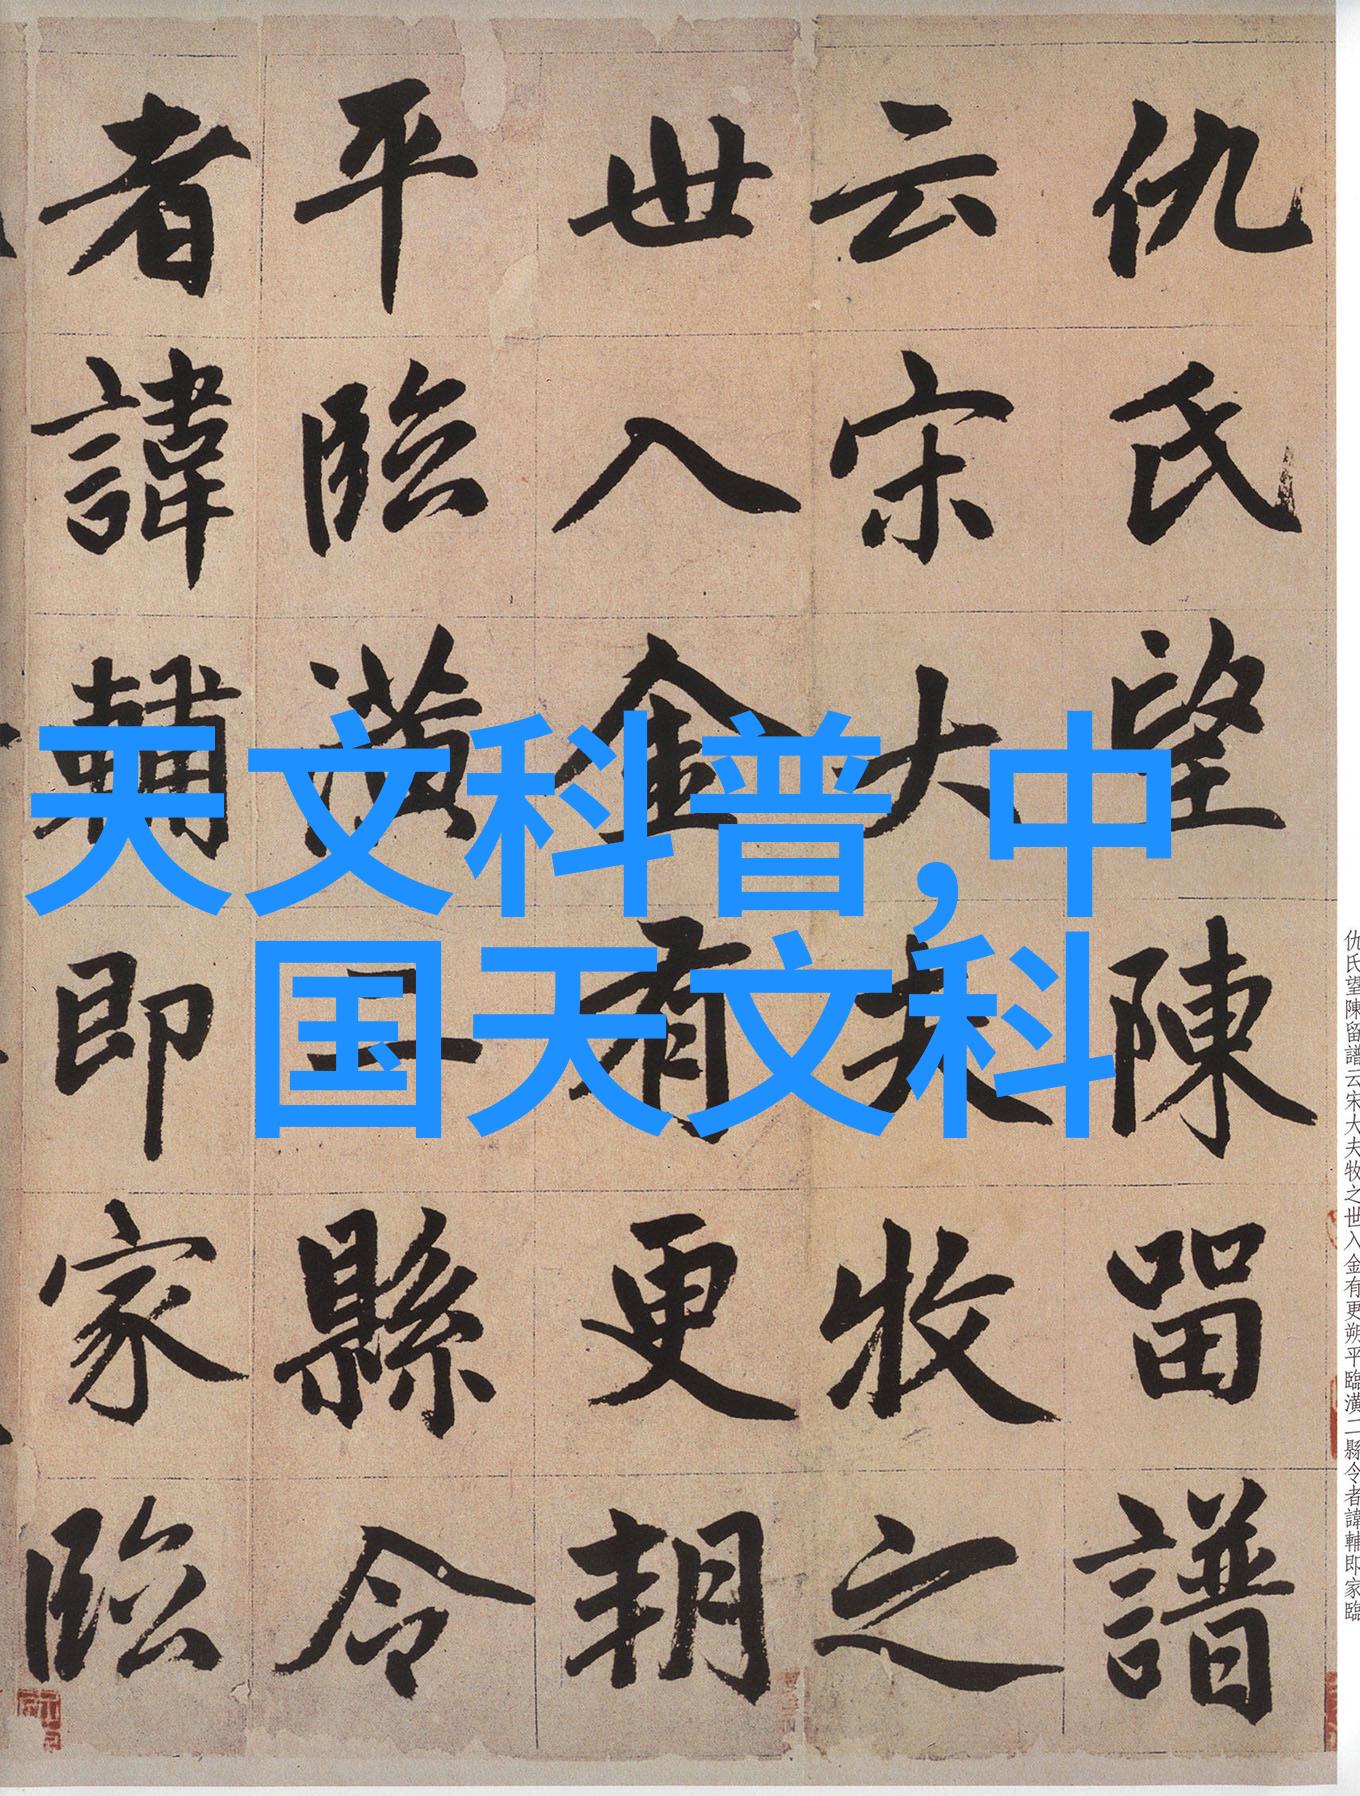 仇氏望陳留譜
云宋大夫牧之
世入金有更朔
平臨潢二縣令
者諱輔即家臨
天文科普,中
国天文科
仇氏望陳留譜云宋大夫牧之世入金有更朔平臨潢二縣令者諱輔即家臨